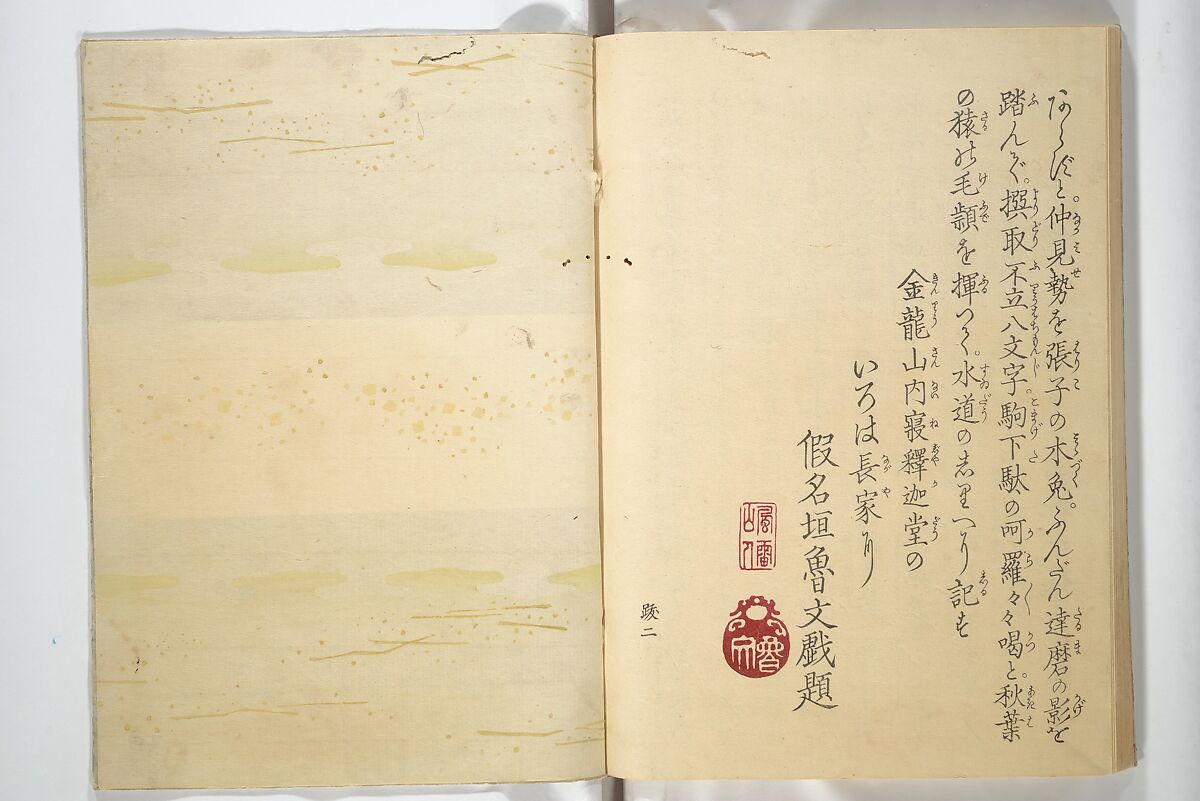 と。仲見勢を張子の木兎。ふんだん達磨の影を
踏んで。撰取不立八文字駒下駄の呵羅々々喝と。秋葉
の猿の毛頴を揮つて。水道の志りへに記す
金龍山内寝釋迦堂の
いろは長家に
假名垣魯文戯題
風雷山人
跋二